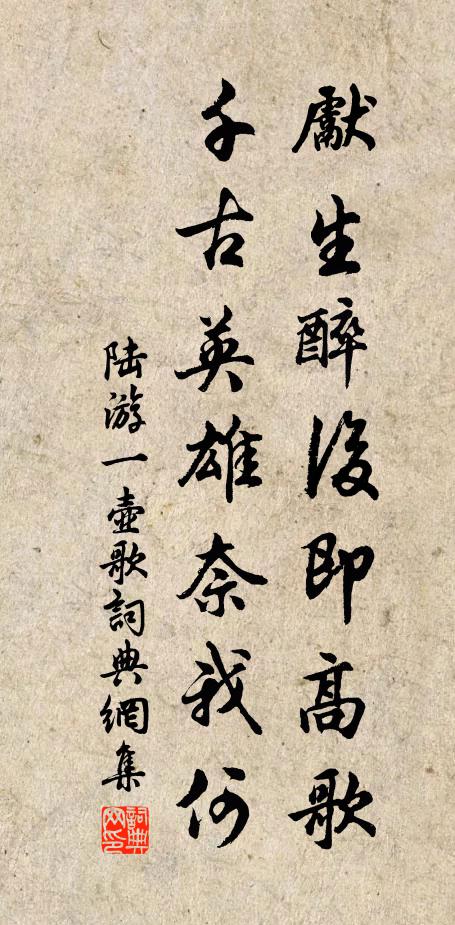 獻生醉後即高歌
千古英雄奈我何
陸游一壺歌詞典網集
詞典網印